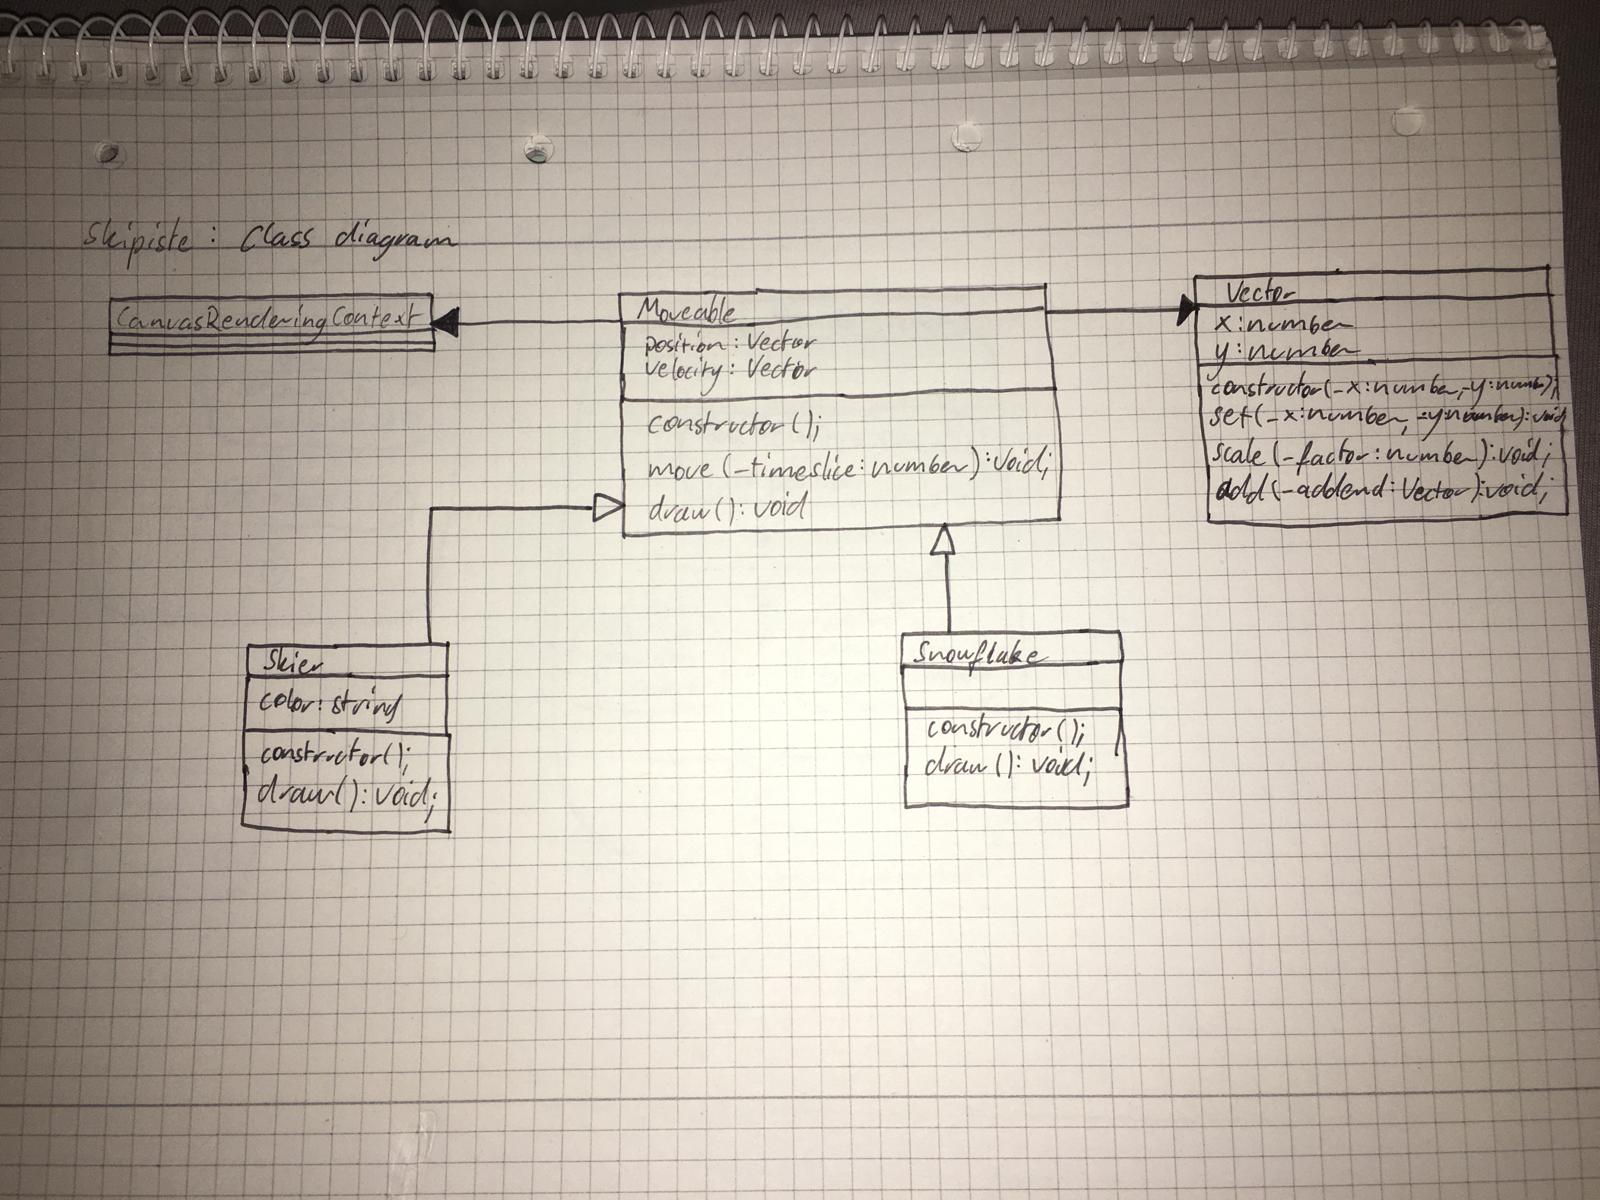 Skipiste : Class diagram
CanvasRenderingContext
Moveable
position : Vector
velocity : Vector
constructor ();
move (-timeslice : number) : void;
draw () : void
Vector
x : number
y : number
constructor (-x : number, -y : number);
set (-x : number, -y : number) : void
scale (-factor : number) : void;
add (-addend : Vector) : void;
Skier
color : string
constructor ();
draw () : void;
Snowflake
constructor ();
draw () : void;